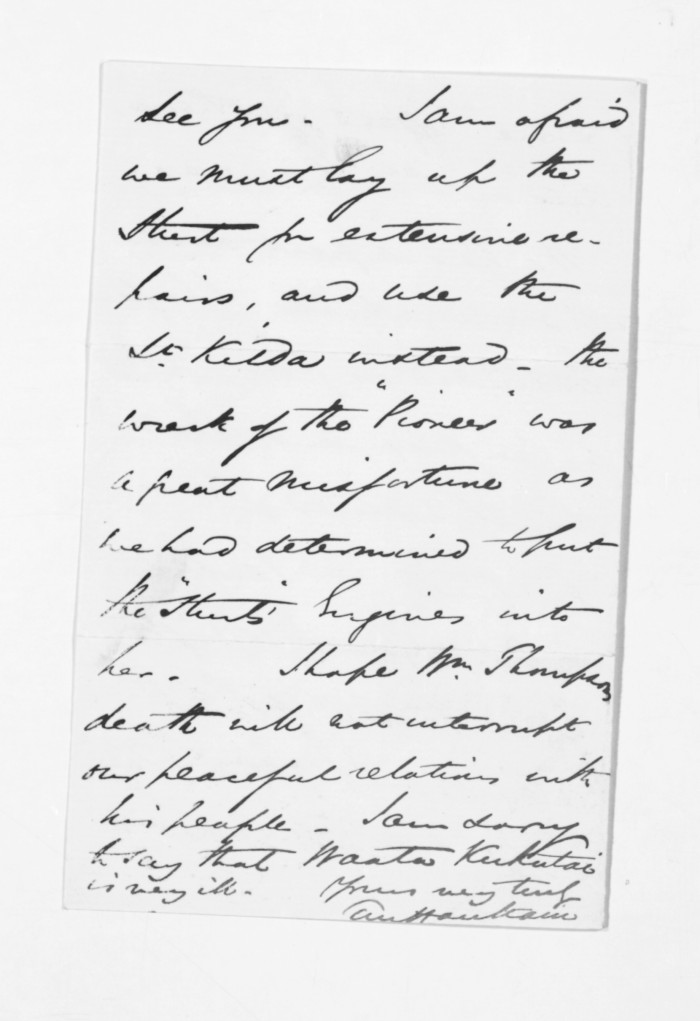 see you. I am afraid
we must lay up the
Sturt for extensive re-
pairs, and use the
St. Kilda instead. The
wreck of the "Pioneer" was
a great misfortune as
we had determined to put
the "Sturt's" Engines into
her. I hope Wm. Thompson
death will not interrupt
our peaceful relations with
his people. I am sorry
to say that Waata Kukutai
is very ill. Yours very truly